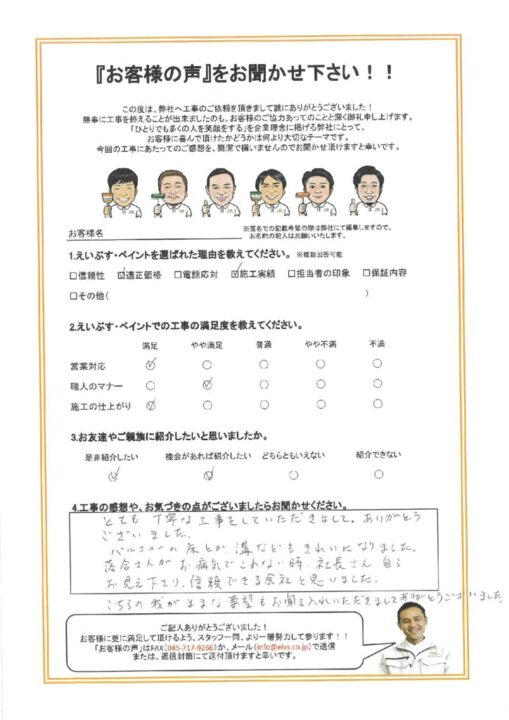 『お客様の声』をお聞かせ下さい！！
この度は、弊社へ工事のご依頼を頂きまして誠にありがとうございました！
無事に工事を終えることが出来ましたのも、お客様のご協力あってのことと深く御礼申し上げます。
「ひとりでも多くの人を笑顔をする」を企業理念に掲げる弊社にとって、
お客様に喜んで頂けたかどうかは何より大切なテーマです。
今回の工事にあたってのご感想を、簡潔で構いませんのでお聞かせ頂けますと幸いです。
お客様名
※匿名での記載希望の際は弊社にて編集しますので、
お名前の記入はお願いいたします。
1.えいぶす・ペイントを選ばれた理由を教えてください。 ※複数回答可能
□信頼性 ☑適正価格 □電話応対 ☑施工実績 □担当者の印象 □保証内容
□その他( )
2.えいぶす・ペイントでの工事の満足度を教えてください。
満足 やや満足 普通 やや不満 不満
営業対応
職人のマナー
施工の仕上がり
3.お友達やご親族に紹介したいと思いましたか。
是非紹介したい 機会があれば紹介したい どちらともいえない 紹介できない
4.工事の感想や、お気づきの点がございましたらお聞かせください。
とても丁寧な工事をしていただきまして。ありがとう
ございました。
バルコニーの床とか溝などもきれいになりました。
落合さんがお病気でこれない時、社長さん自ら
お見え下さり、信頼できる会社と思いました。
こちらの我がままな要望もお聞き入れいただきましてありがとうございました。
ご記入ありがとうございました！
お客様に更に満足して頂けるよう、スタッフ一同、より一層努力して参ります！！
「お客様の声」はFAX（045-717-9266）か、メール（info@eivs.co.jp）で送信
または、返信封筒にて送付頂けますと幸いです。